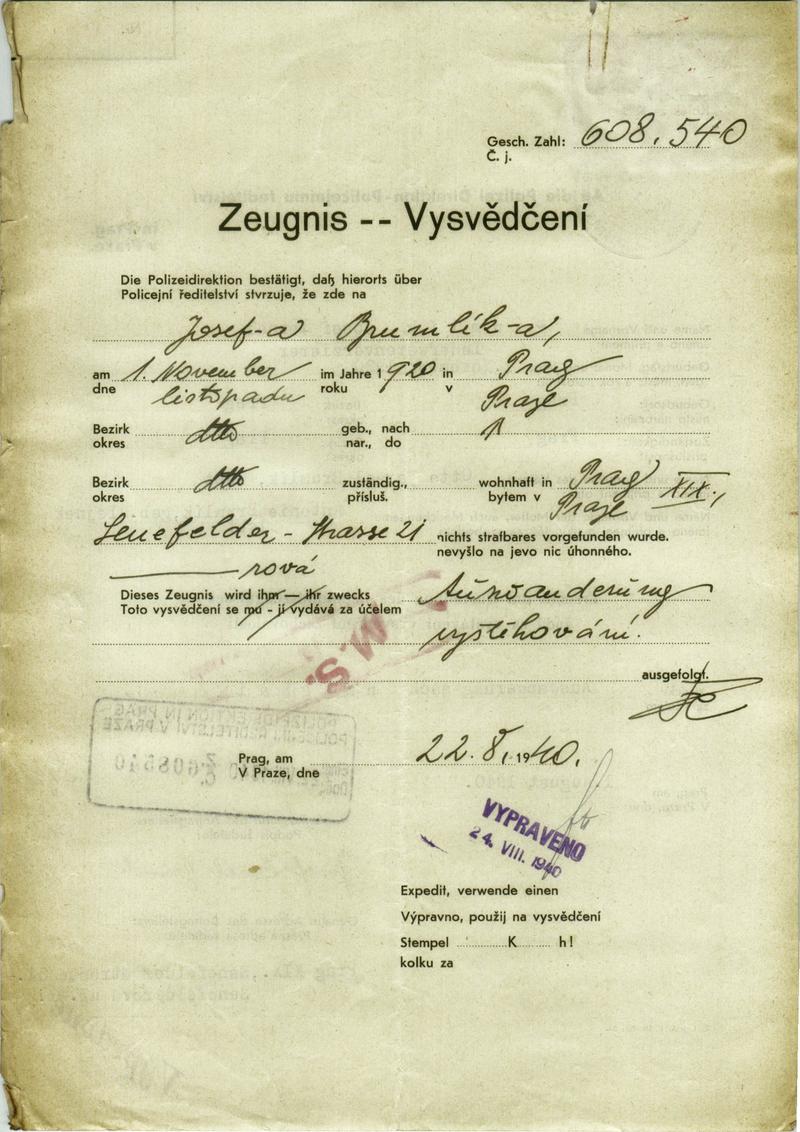 Gesch. Zahl: 608.540
Č. j.
Zeugnis -- Vysvědčení
Die Polizeidirektion bestätigt, daß hierorts über
Policejní ředitelství stvrzuje, že zde na
Josef-a Brumlík-a,
am 1. November im Jahre 1920 in Prag
dne listopadu roku v Praze
Bezirk dtto geb., nach
okres nar., do
Bezirk dtto zuständig., wohnhaft in Prag XIX.,
okres přísluš. bytem v Praze
Senefelder-Strasse 21 nichts strafbares vorgefunden wurde.
nevyšlo na jevo nic úhonného.
rová
Dieses Zeugnis wird ihm — ihr zwecks Auswanderung
Toto vysvědčení se mu - jí vydává za účelem
vystěhování.
M.S.
ausgefolgt.
POLIZEIDIREKTION IN PRAG
POLICEJNÍ ŘEDITELSTVÍ V PRAZE
608540
Prag, am 22. 8. 1940.
V Praze, dne
VYPRAVENO
24. VIII. 1940
Expedit, verwende einen
Výpravno, použij na vysvědčení
Stempel K h!
kolku za